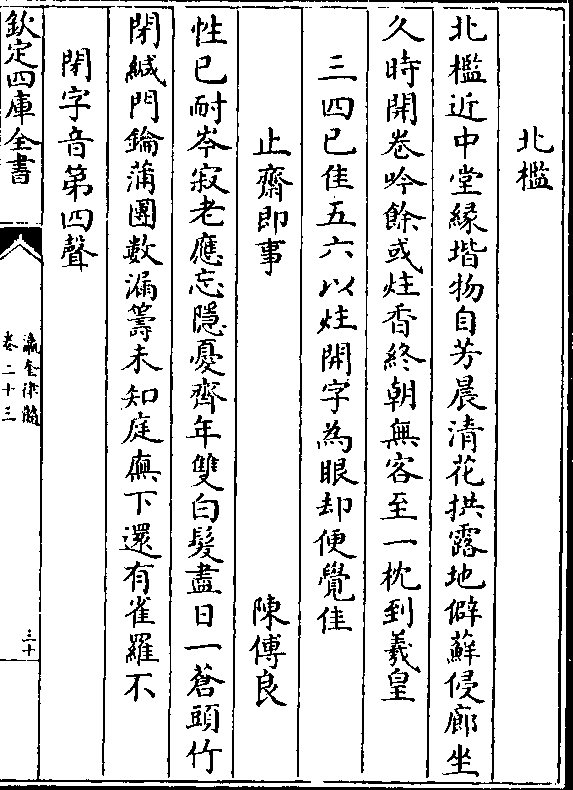 北檻
北檻近中堂緣堦物自芳晨清花拱露地僻蘚侵廊坐
久時開卷吟餘或炷香終朝無客至一枕到羲皇
三四已佳五六以炷開字為眼却便覺佳
止齋即事
陳傅良
性已耐岑寂老應忘隱憂齊年雙白髮盡日一蒼頭竹
閉緘門鑰蒲團數漏籌未知庭廡下還有雀羅不
閉字音第四聲
欽定四庫全書
瀛奎律髓
卷二十三
三十